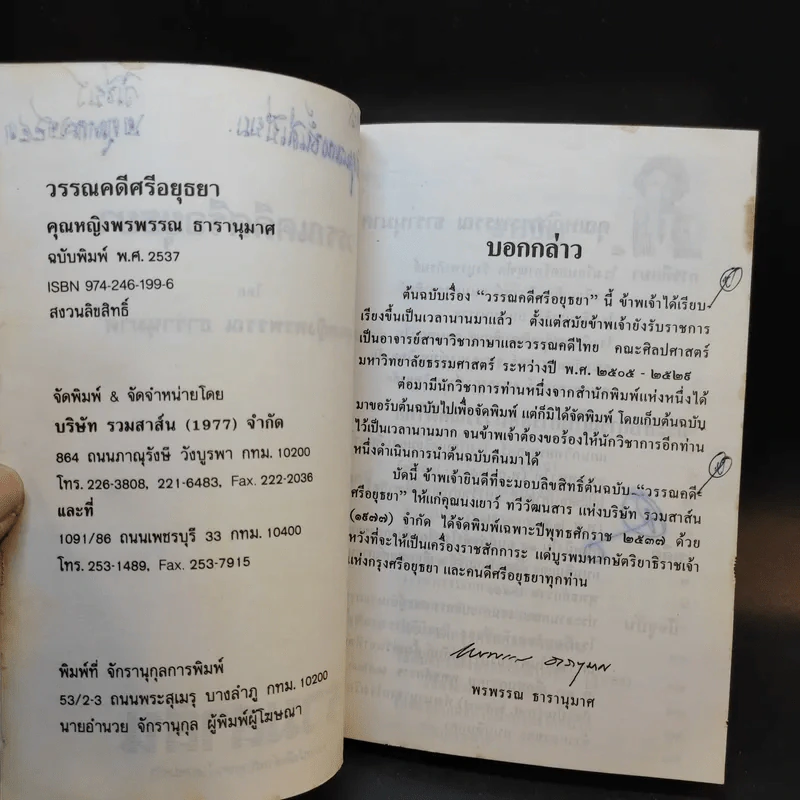 วรรณคดีศรีอยุธยา
คุณหญิงพรพรรณ ธารานุมาศ
ฉบับพิมพ์ พ.ศ. 2537
ISBN 974-246-199-6
สงวนลิขสิทธิ์
จัดพิมพ์ & จัดจำหน่ายโดย
บริษัท รวมสาส์น (1977) จำกัด
864 ถนนภาณุรังษี วังบูรพา กทม. 10200
โทร. 226-3808, 221-6483, Fax. 222-2036
และที่
1091/86 ถนนเพชรบุรี 33 กทม. 10400
โทร. 253-1489, Fax. 253-7915
พิมพ์ที่ จักรานุกูลการพิมพ์
53/2-3 ถนนพระสุเมรุ บางลำภู กทม. 10200
นายอำนวย จักรานุกุล ผู้พิมพ์ผู้โฆษณา
บอกกล่าว
ต้นฉบับเรื่อง “วรรณคดีศรีอยุธยา” นี้ ข้าพเจ้าได้เรียบ-
เรียงขึ้นเป็นเวลานานมาแล้ว ตั้งแต่สมัยข้าพเจ้ายังรับราชการ
เป็นอาจารย์สาขาวิชาภาษาและวรรณคดีไทย คณะศิลปศาสตร์
มหาวิทยาลัยธรรมศาสตร์ ระหว่างปี พ.ศ. ๒๕๐๕ - ๒๕๒๙
ต่อมามีนักวิชาการท่านหนึ่งจากสำนักพิมพ์แห่งหนึ่งได้
มาขอรับต้นฉบับไปเพื่อจัดพิมพ์ แต่ก็มิได้จัดพิมพ์ โดยเก็บต้นฉบับ
ไว้เป็นเวลานานมาก จนข้าพเจ้าต้องขอร้องให้นักวิชาการอีกท่าน
หนึ่งดำเนินการนำต้นฉบับคืนมาได้
บัดนี้ ข้าพเจ้ายินดีที่จะมอบลิขสิทธิ์ต้นฉบับ “วรรณคดี-
ศรีอยุธยา” ให้แก่คุณนงเยาว์ ทวีวัฒนสาร แห่งบริษัท รวมสาส์น
(๑๙๗๗) จำกัด ได้จัดพิมพ์เฉพาะปีพุทธศักราช ๒๕๓๗ ด้วย
หวังที่จะให้เป็นเครื่องราชสักการะ แด่บูรพมหากษัตริยาธิราชเจ้า
แห่งกรุงศรีอยุธยา และคนดีศรีอยุธยาทุกท่าน
พรพรรณ ธารานุมาศ